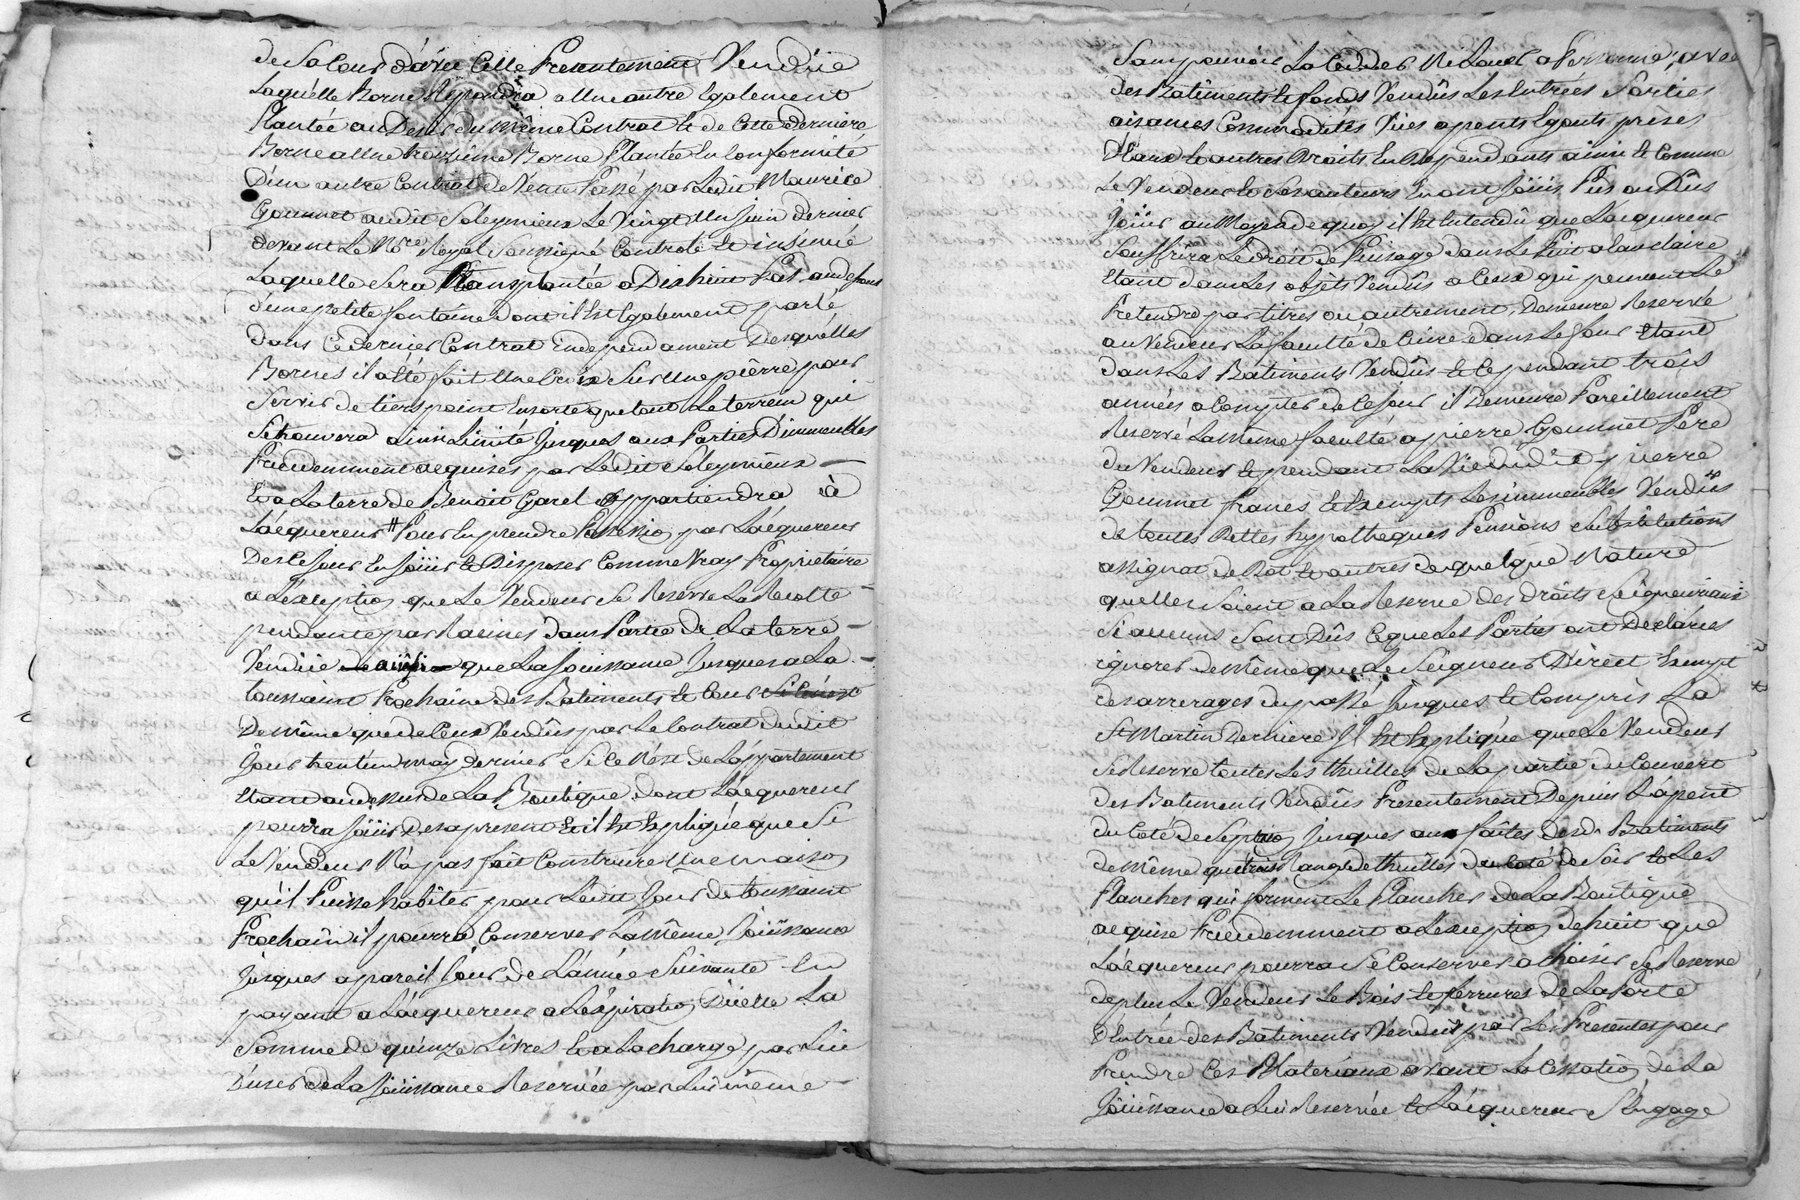 de Sa Cour d'avec Celle Presentement Vendüe
Laquelle Borne Répondra a Une autre Egalement
Plantée au Desir du Même Contrat et de Cette derniere
Borne a Une troizième Borne Plantée En Conformité
D'un autre Contrat de Vente Passé par Ledit Maurice
Gounnet audit Soleymieux Le Vingt Un juin dernier
devant Le Nore Royal Soussigné Controlé et insinué
Laquelle Sera Transplantée a Dixhuit Pas au dessous
d'une petite fontaine dont il Est Egalement parlé
dans Ce dernier Contrat independament Desquelles
Bornes il a été fait Une Croix Sur Une pierre pour
Servir de tiers point Ensorte que tout Le terrein qui
Se trouvera ainsi Limité Jusques aux Parties D'immeubles
Precedemment acquises par Ledit Soleymieux
et a La terre de Benoit Garel appartiendra à
L'acquereur # Pour En prendre Possession par L'acquereur
Des Ce Jour En Joüir et Disposer Comme Vray Propriétaire
a L'exception que Le Vendeur Se Reserve La Recolte
pendante par Racines dans Partie de La terre
Vendüe ainsi que La Jouissance Jusques a La
toussaint Prochaine des Batiments et Cour
De Même que de Ceux Vendûs par Le Contrat dudit
Jour trent'un may Dernier Si Ce N'est de L'appartement
Etant au dessus de La Boutique dont L'acquereur
pourra Joüir Des apresent Et il Est Expliqué que Si
Le Vendeur N'a pas fait Construire Une maison
qu'il Puisse habiter pour Ledit Jour de toussaint
Prochain il pourra Conserver La Même Joüissance
Jusques a pareil Jour de L'année Suivante En
payant a L'acquereur a L'expiration D'icelle La
Somme de quinze Livres et a La charge par Lui
D'user de La Joüissance Reservée par Lui même
Sans pouvoir La Ceder Ni Louer a Personne, avec
des Batiments et fonds Vendûs Les Entrées Sorties
aisances Commodités Vües apents Egouts prises
D'Eaux et autres Droits En Dependants ainsi et Comme
Le Vendeur et Ses auteurs En ont Joüis Pû ou Dûs
Joüir au Moyen de quoy il Est Entendû que L'acquereur
Souffrira Le droit de Puisage dans Le Puit a L'au Claire
Etant dans Les objets Vendûs a Ceux qui peuvent Le
Pretendre par titres ou autrement, Demeure Reservée
au Vendeur La faculté de Cuire dans Le four Etant
dans Les Batiments Vendûs et Ce pendant trois
années a Compter de Ce Jour il Demeure Pareillement
Reservé La Même faculté a pierre Gounnet Pere
du Vendeur et pendant La Vie dudit pierre
Gounnet francs et Exempts Les immeubles Vendûs
de toutes Dettes hypotheques Pensions Substitutions
assignat de Dot et autres de quelque Nature
quelles Soient a La Reserve des droits Seigneuriaux
Si aucuns Sont Dûs Ce que Les Parties ont Déclarées
ignorer de Même que Le Seigneur Direct Exempt
des arrerages du passé Jusques et Compris La
St Martin Derniere Il Est Expliqué que Le Vendeur
Se Reserve toutes Les thuilles de La partie du Couvert
des Batiments Vendûs Presentement Depuis L'apent
du Coté de Seption Jusques au faites desd. Batiments
de Même que trois Rangs de thuilles du Coté de Soir et Les
Planches qui forment Le Plancher de La Boutique
acquise Precedemment a L'exception de huit que
L'acquereur pourra Se Conserver a choisir Se Reserve
de plus Le Vendeur Le Bois et ferrures de La Porte
D'Entrée des Batiments Vendus par Les Presentes pour
Prendre Ces Materiaux avant La Cessation de La
Joüissance a Lui Reservée et L'acquereur S'Engage